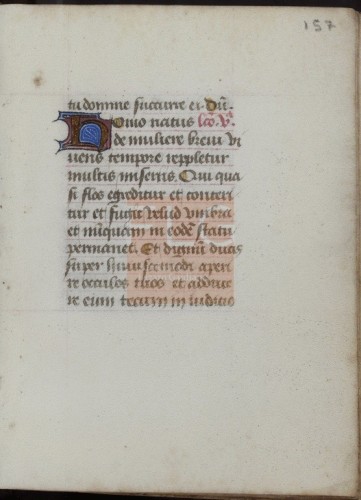 157
tu domine succurre ei. Dñ.
Homo natus lcō. v.
de muliere breui vi
uens tempore reppletur
multis miseriis. Qui qua
si flos egreditur et conteri
tur et fugit velud vmbra
et nũquam in eodē statu
permanet. Et dignũ ducis
super huiuscemodi aperi
re occulos tuos et adduce
re eum tecum in iudicio